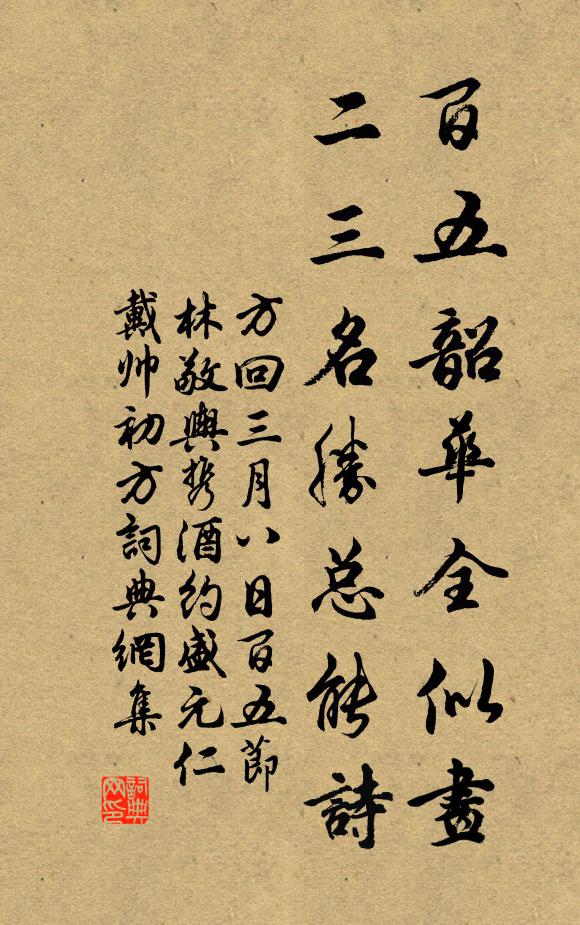 百五韶華全似畫
二三名勝总能詩
方回三月八日百五節
林敬與携酒約盛元仁
戴帅初方詞典網集
詞典网印